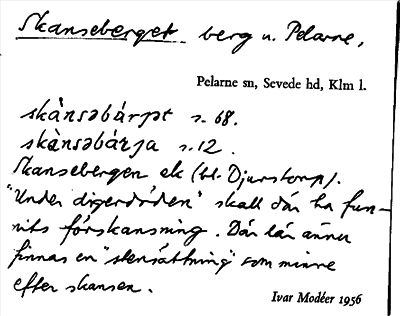 Skanseberget berg u. Pelarne.
Pelarne sn, Sevede hd, Klm l.
skånsəbárʒət s. 68.
skånsəbárʒa s. 12.
Skansebergen ek (bl. Djurstorp).
"Under digerdöden" skall där ha fun-
nits förskansning. Där lär ännu
finnas en "stensättning" som minne
efter skansen.
Ivar Modéer 1956